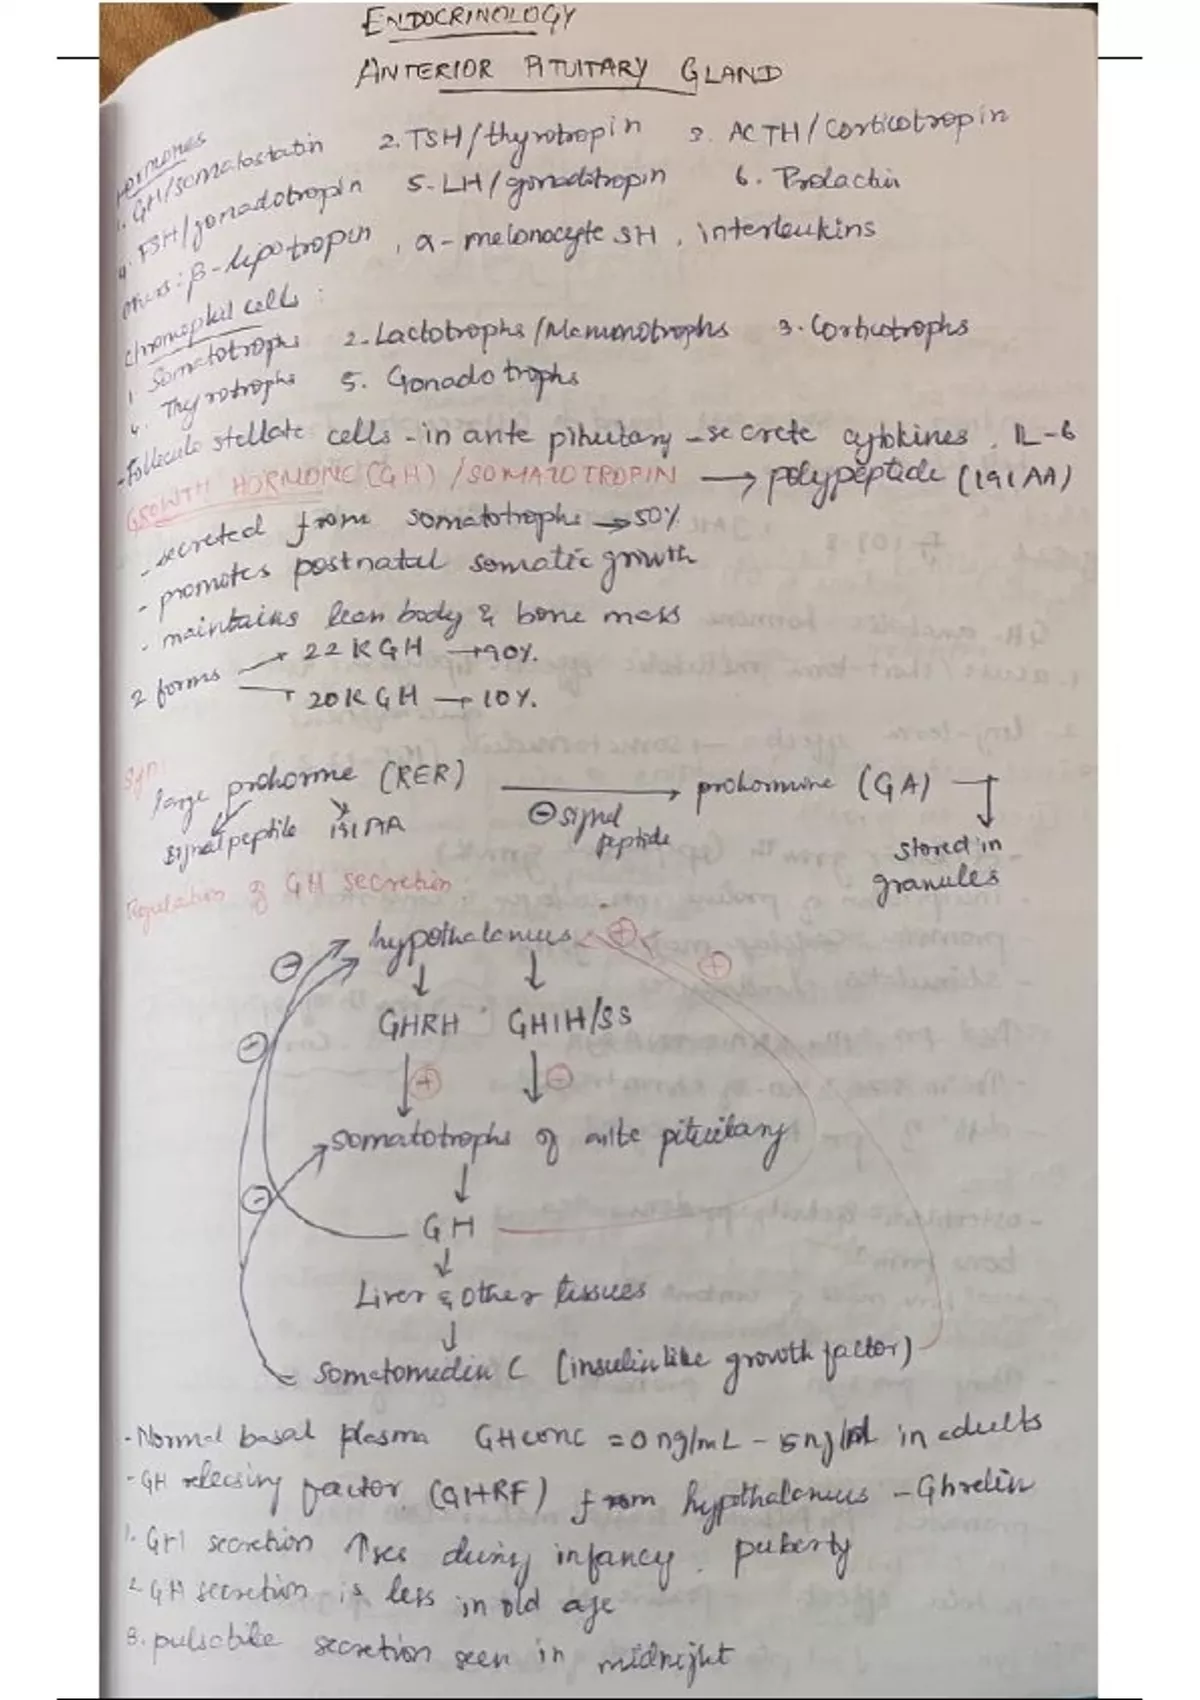 ENDOCRINOLOGY
ANTERIOR PITUITARY GLAND
Hormones
1. GH/somatostatin 2. TSH/thyrotropin 3. ACTH/corticotropin
4. FSH/gonadotropin 5. LH/gonadotropin 6. Prolactin
others: β-lipotropin, α-melonocyte SH, interleukins
Chromophil cells:
1. Somatotrophs 2. Lactotrophs/Mammotrophs 3. Corticotrophs
4. Thyrotrophs 5. Gonadotrophs
-Folleculo stellate cells - in ante pituitary - secrete cytokines, IL-6
GROWTH HORMONE (GH) / SOMATOTROPIN → polypeptide (191AA)
- secreted from somatotrophs → 50%
- promotes postnatal somatic growth
- maintains lean body & bone mass
2 forms → 22K GH → 90%.
→ 20K GH → 10%.
Syn:
large prohorme (RER) → prohormone (GA)
signal peptide 191AA ⊖ signal peptide stored in
granules
Regulation of GH secretion
hypothalamus ⊕
⊖ ⊕
GHRH GHIH/SS
⊖ ⊕ ⊖
somatotrophs of ante pituitary
⊖ GH
Liver & other tissues
Somatomedin C (insulin like growth factor)
-Normal basal plasma GH conc = 0 ng/mL - 5 ng/ml in adults
-GH releasing factor (GHRF) from hypothalamus - Ghrelin
1. GH secretion ↑ses during infancy, puberty
2. GH secretion is less in old age
3. pulsatile secretion seen in midnight